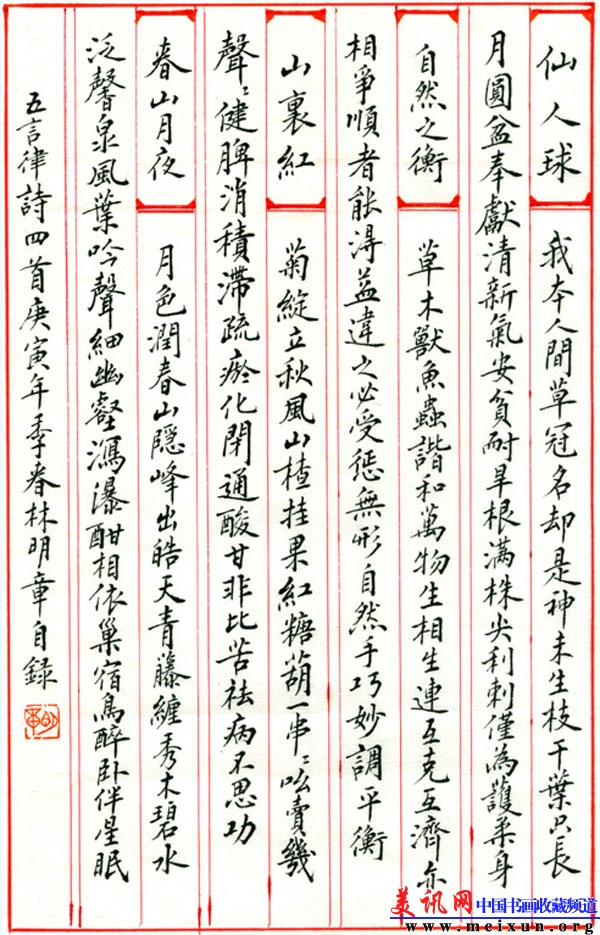 仙人球 我本人間草冠名却是神未生枝干葉只長
月圓盆奉獻清新氣安貧耐旱根滿株尖利刺僅為護柔身
自然之衡 草木獸魚蟲諧和萬物生相生連互克互濟亦
相爭順者能得益違之必受懲無形自然手巧妙調平衡
山裏紅 菊綻立秋風山楂挂果紅糖葫一串〻吆賣幾
聲〻健脾消積滯疏瘀化閉通酸甘非比苦祛病不思功
春山月夜 月色潤春山隱峰出皓天青藤纏秀木碧水
泛馨泉風葉吟聲細幽壑馮瀑酣相依巢宿鳥醉卧伴星眠
五言律詩四首庚寅年季春林明章自錄
美讯网 中国书画收藏频道
www.meixun.org